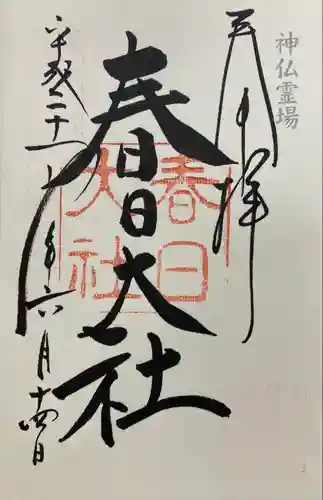 神仏霊場
奉拝
春日大社
春日
大社
平成二十一年六月十四日